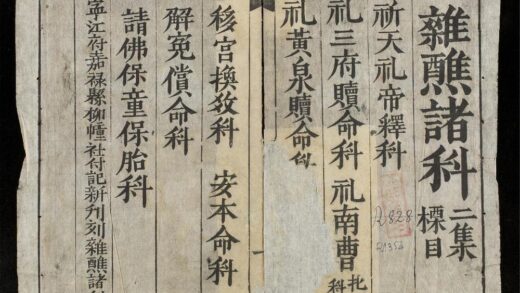 雜醮諸科
二集
標目
祈天礼帝釋科
礼三府贖命科 礼南曹北科
礼黃泉贖命科
移宮換数科 安本命科
解冤償命科
請佛保童保胎科
寧江府嘉禄縣柳幢社付記新刋刻雜醮諸
R.828